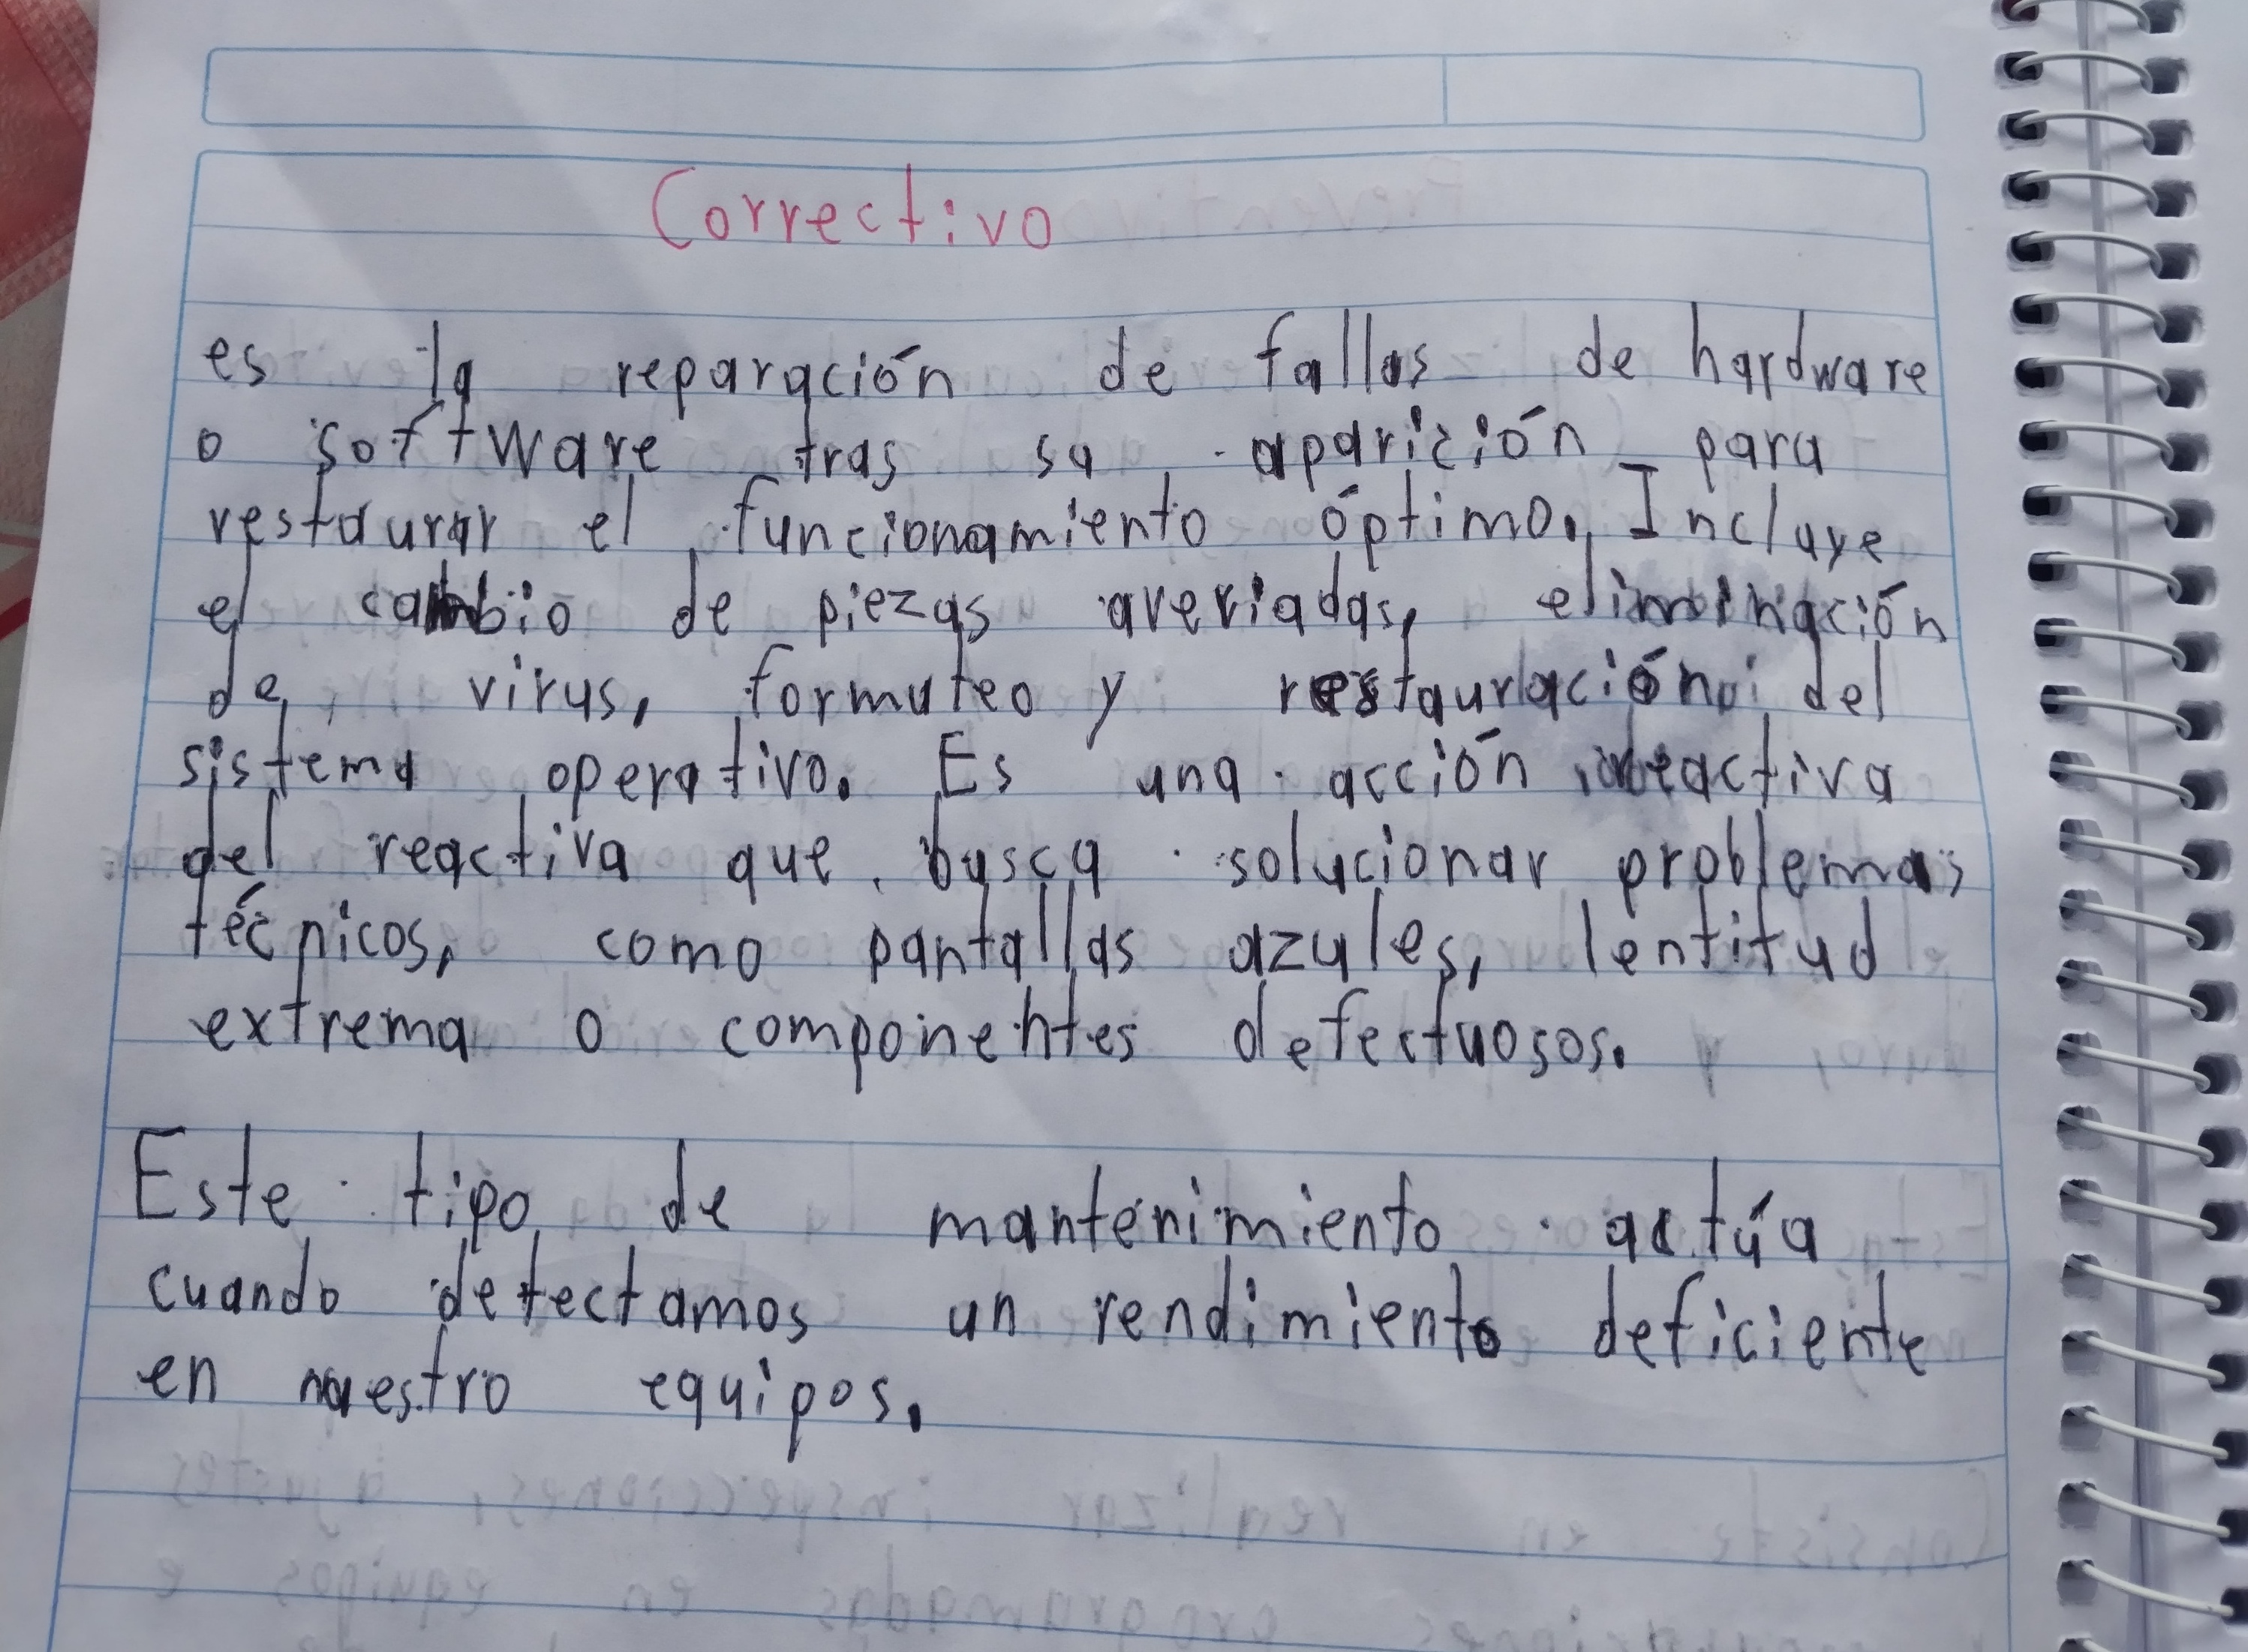 Correctivo
es la reparación de fallas de hardware
o software tras su aparición para
restaurar el funcionamiento óptimo. Incluye
el cambio de piezas averiadas, eliminación
de virus, formateo y restauración del
sistema operativo. Es una acción reactiva
del reactiva que busca solucionar problemas
técnicos, como pantallas azules, lentitud
extrema o componentes defectuosos.
Este tipo de mantenimiento actúa
cuando detectamos un rendimiento deficiente
en nuestro equipos.